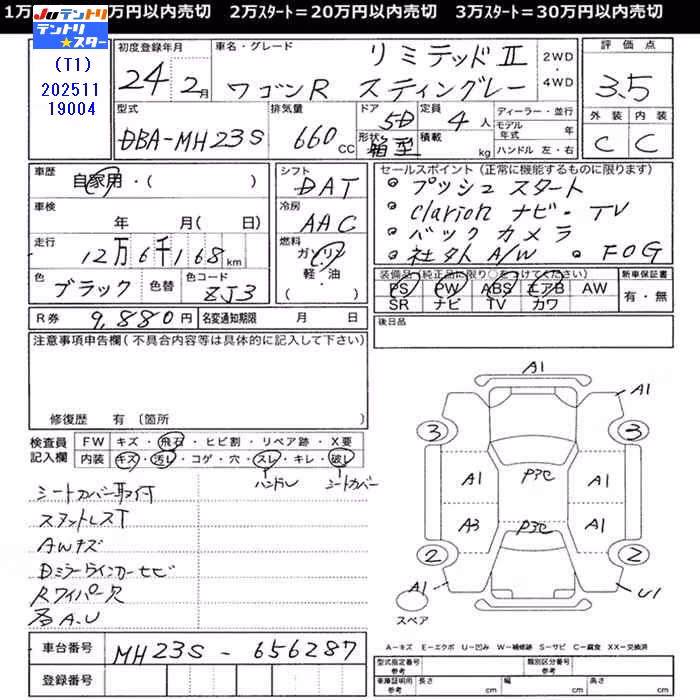 1万 万円以内売切 2万スタート=20万円以内売切 3万スタート=30万円以内売切
Juテントリ
テントリ★スター
(T1)
202511
19004
初度登録年月
24年 2月
車名・グレード
リミテッドⅡ
ワゴンR スティングレー
2WD
・
4WD
評価点
3.5
型式
DBA-MH23S
排気量
660 CC
ドア
5D
形状
箱型
定員
4人
積載
kg
ディーラー・並行
モデル年式 年
ハンドル 左・右
外装 内装
C C
車歴
自家用・( )
シフト
DAT
セールスポイント (正常に機能するものに限ります)
プッシュスタート
clarion ナビ・TV
バックカメラ
社外A/W ・FOG
車検
年 月( 日)
冷房
AAC
走行
12万6千168km
燃料
ガソリン
軽・油
( )
色
ブラック
色替
色コード
ZJ3
装備品(純正品に限り○をつけてください)
PS PW ABS エアB AW
SR ナビ TV カワ
新車保証書
有・無
R券 9,880円
名変通知期限 月 日
後日品
注意事項申告欄(不具合内容等は具体的に記入して下さい)
修復歴 有(箇所
検査員
記入欄
FW キズ・飛石・ヒビ割・リペア跡・X要
内装 キズ・汚レ・コゲ・穴・スレ・キレ・破レ
ハンドル シートカバー
シートカバー取付
AWキズ
Dミラーウインカーセビ
Rワイパー欠
各A.U
A1
A1
3 3
A1 P3C A1
A3 P3C A1
2 2
A1 U1
スペア
A-キズ E-エクボ U-凹み W-補修跡 S-サビ C-腐食 XX-交換済
車台番号 MH23S - 656287
登録番号
型式指定番号
参考
類別区分番号
参考
車庫証明用
参考
長さ cm 幅 cm 高さ cm